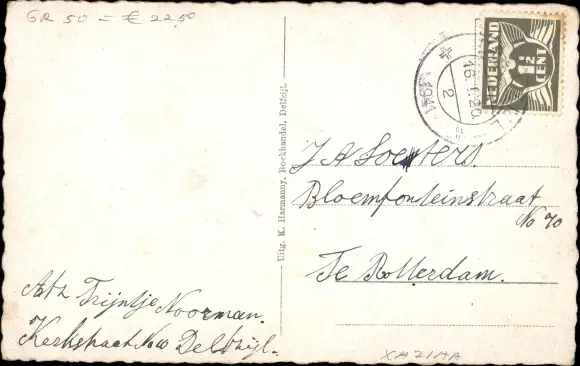 GR 50 = € 22,50
NEDERLAND
1½
CENT
1941
2
Uitg. K. Harmanny, Boekhandel, Delfzijl.
J A Soeters
Bloemfonteinstraat
No 70
Te Rotterdam.
Afz Trijntje Noorman.
Kerkstraat No Delfzijl.